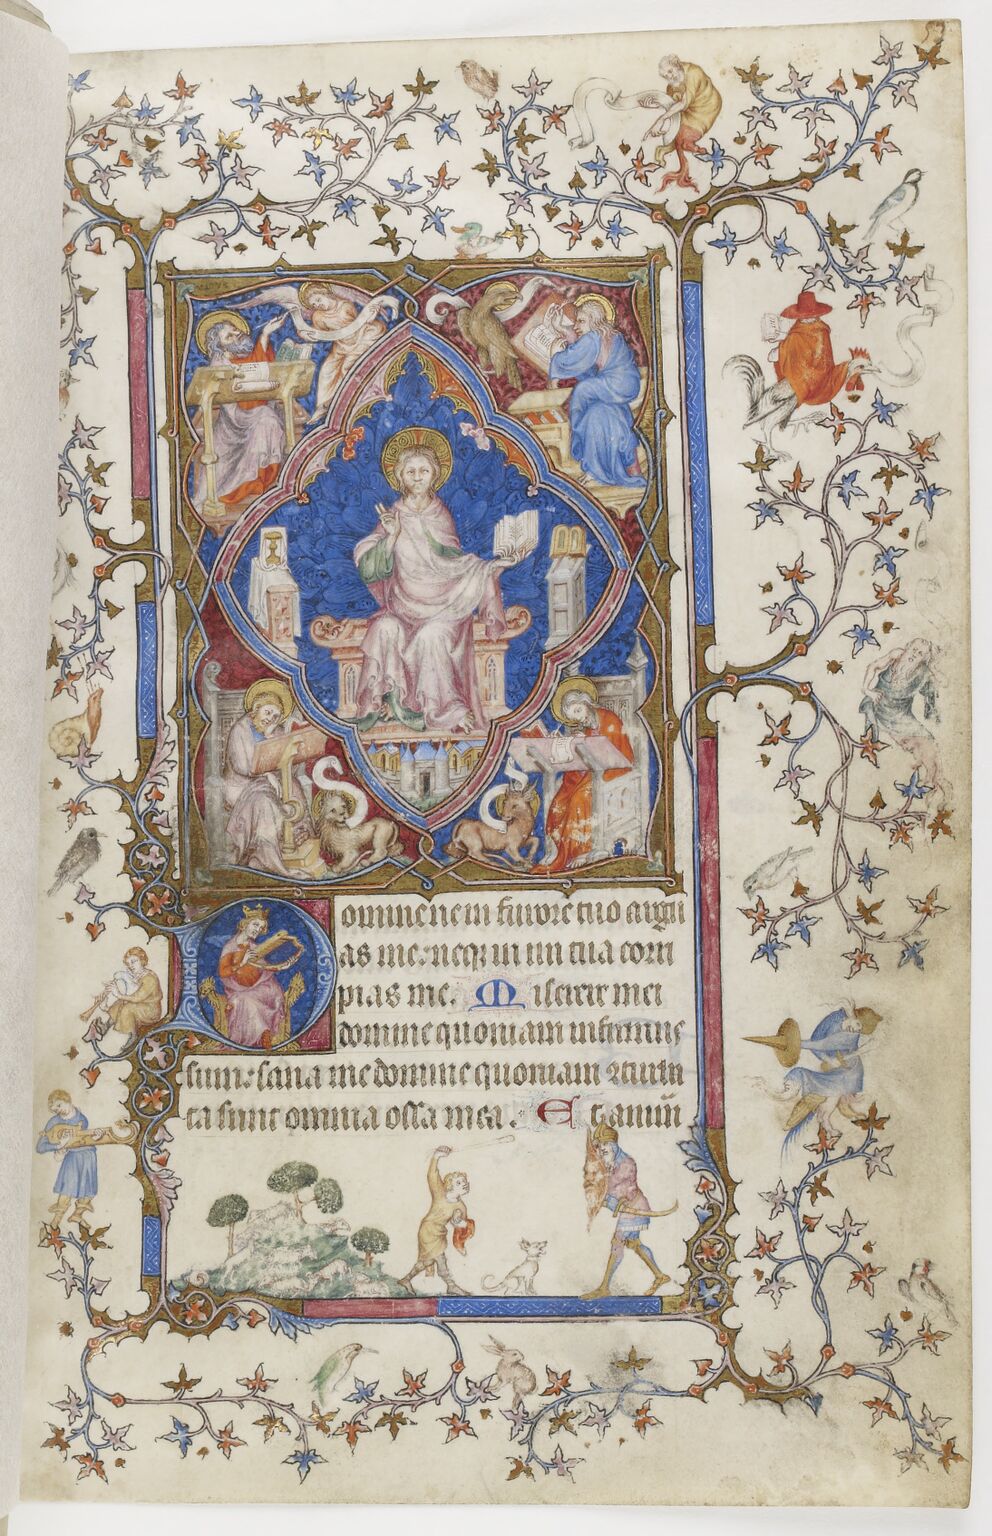 Domine ne in furore tuo argu
as me: neq; in ira tua corri
pias me. Miserere mei
domine quoniam infirmus
sum: sana me domine quoniam 9turba
ta sunt omnia ossa mea. Et anim̄